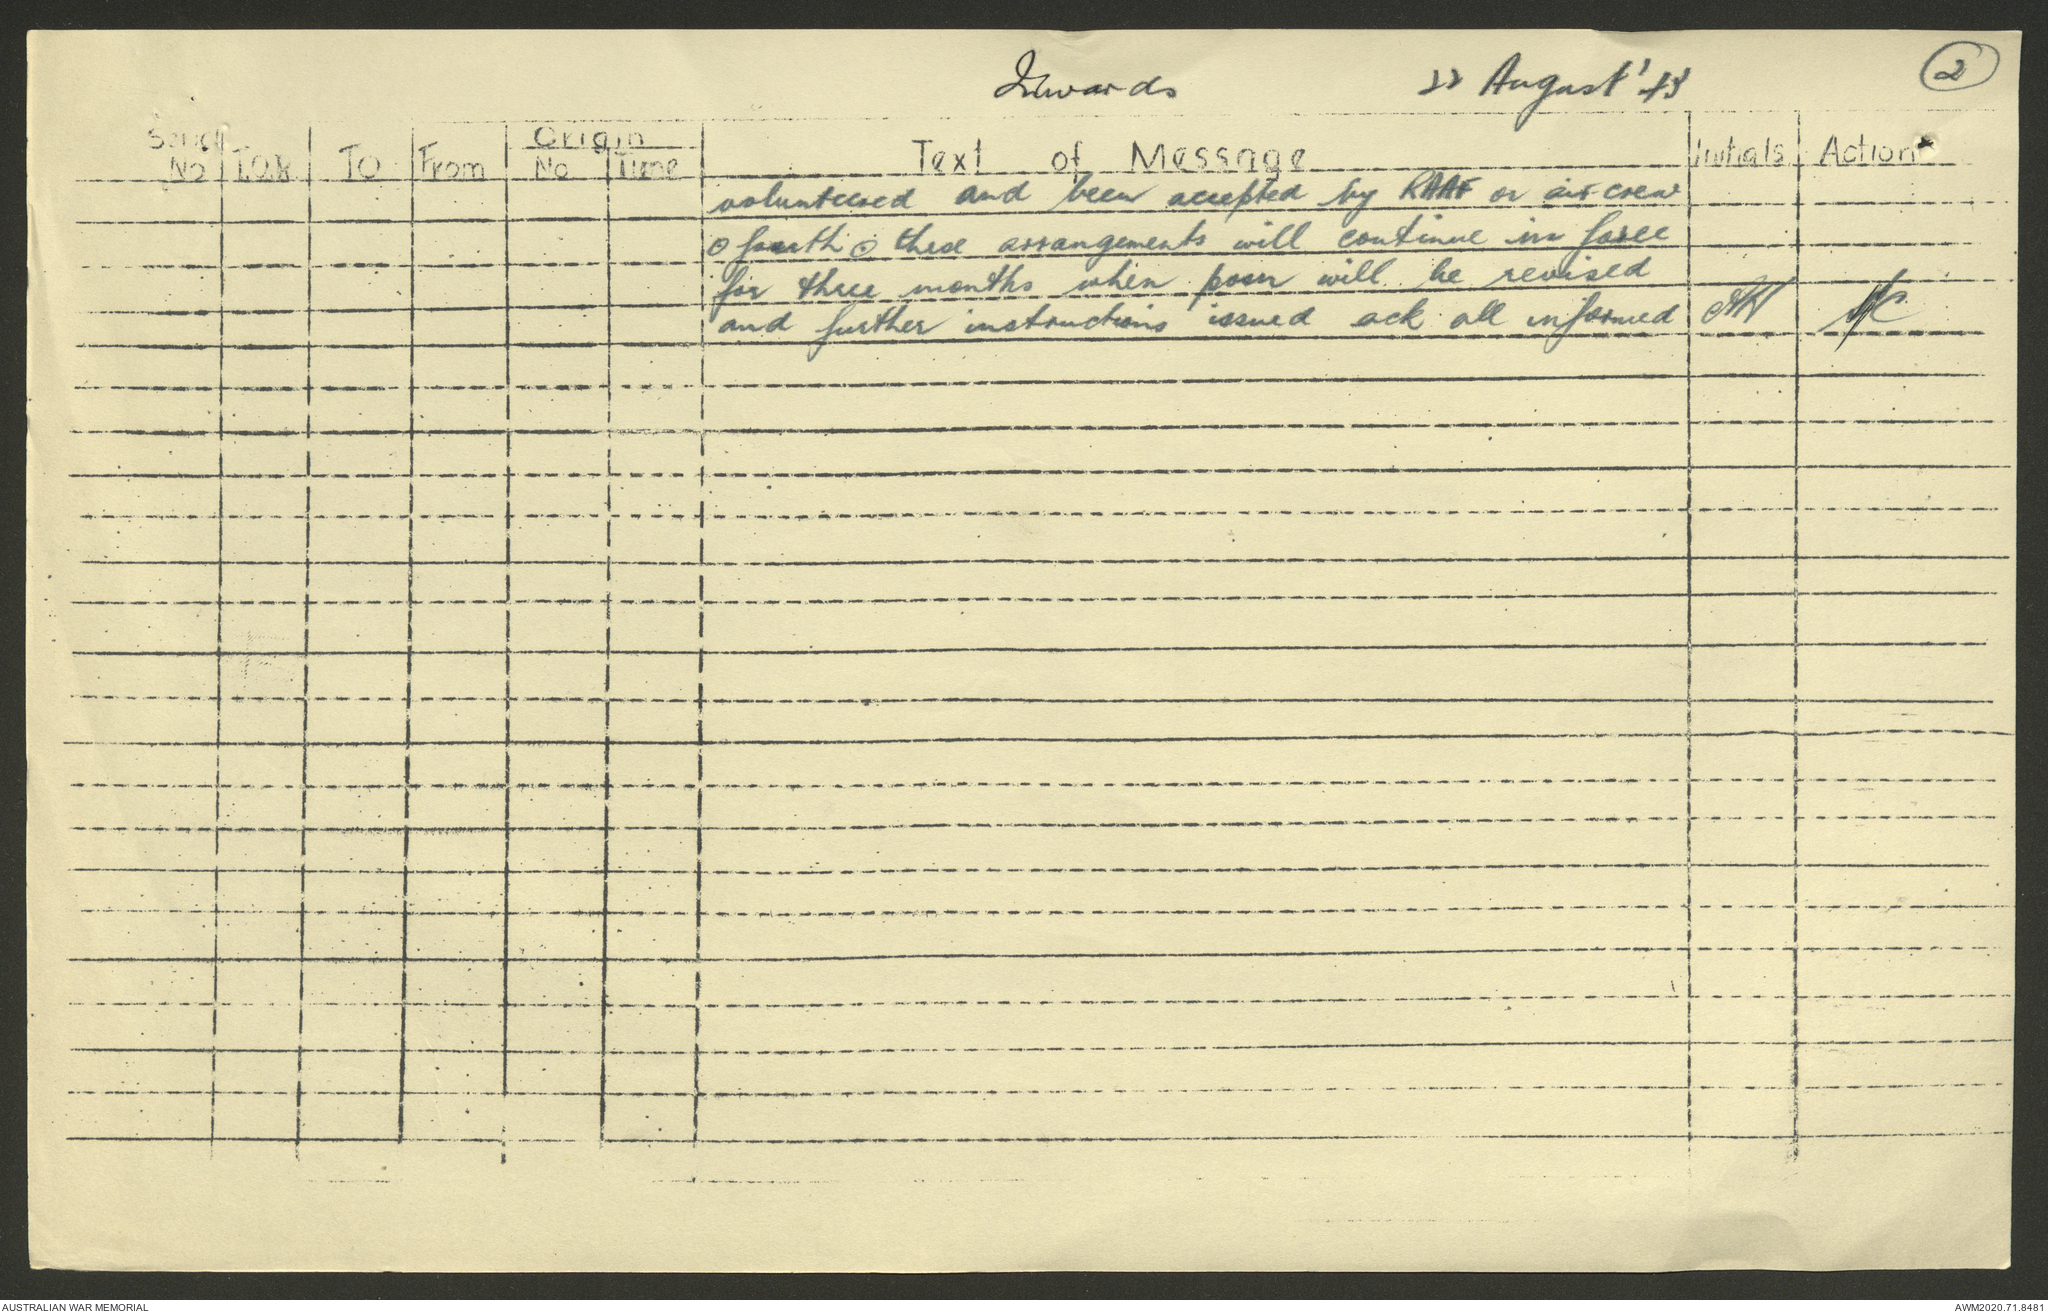 Inwards 22 August '43 2
Serial No T.O.R TO From Origin No Time Text of Message Initials Action
volunteered and been accepted by RAAF or air crew
⊙ fourth ⊙ these arrangements will continue in force
for three months when posn will be revised
and further instructions issued ack all informed
AUSTRALIAN WAR MEMORIAL
AWM2020.71.8481